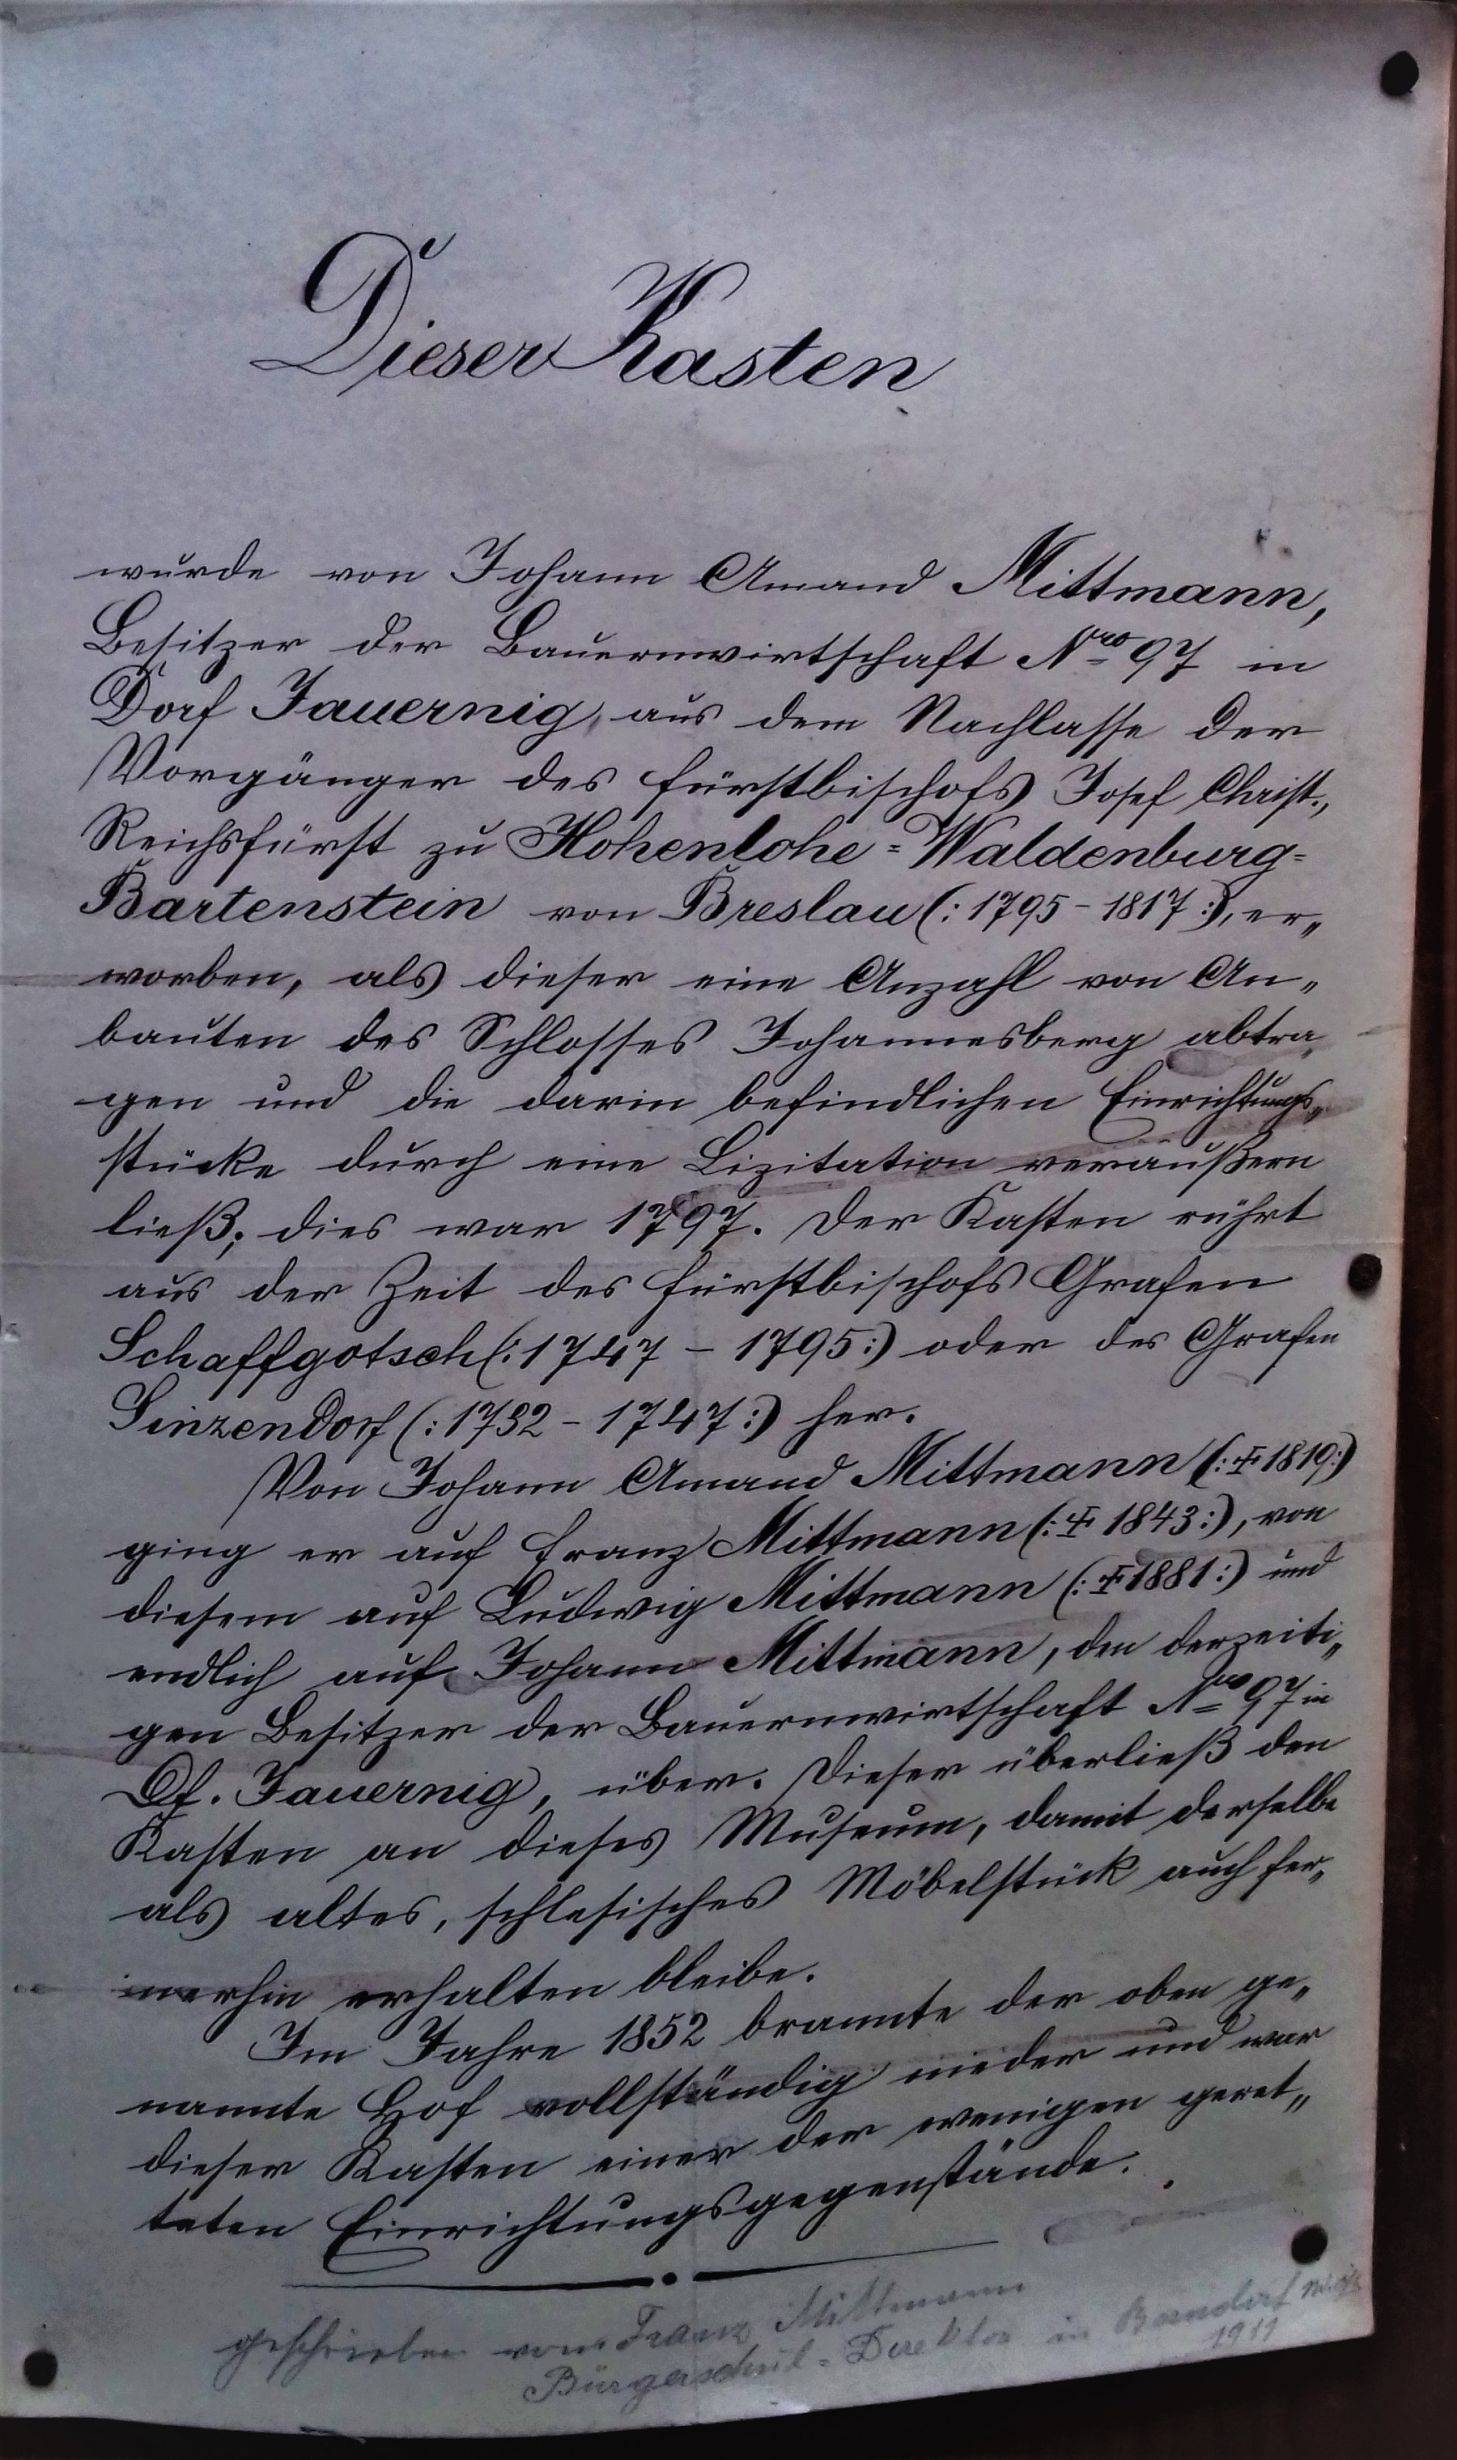 Dieser Kasten
wurde von Johann Amand Mittmann,
Besitzer der Bauernwirtschaft Nro 97 in
Dorf Jauernig, aus dem Nachlasse der
Vorgänger des Fürstbischofs Josef Christ.,
Reichsfürst zu Hohenlohe=Waldenburg=
Bartenstein von Breslau (:1795-1817:), er„
worben, als dieser eine Anzahl von An„
bauten des Schlosses Johannesberg abtra„
gen und die darin befindlichen Einrichtungs„
stücke durch eine Lizitation veräußern
ließ; dies war 1797. Der Kasten rührt
aus der Zeit des Fürstbischofs Grafen
Schaffgotsch (:1747 - 1795:) oder des Grafen
Sinzendorf (:1732 - 1747:) her.
Von Johann Amand Mittmann (:✝1819:)
ging er auf Franz Mittmann (:✝1843:), von
diesem auf Ludwig Mittmann (:✝1881:) und
endlich auf Johann Mittmann, den derzeiti„
gen Besitzer der Bauernwirtschaft Nro 97 in
Df. Jauernig, über. Dieser überließ den
Kasten an dieses Museum, damit derselbe
als altes, schlesisches Möbelstück auch fer„
nerhin erhalten bleibe.
Im Jahre 1852 brannte der oben ge„
nannte Hof vollständig nieder und war
dieser Kasten einer der wenigen geret„
teten Einrichtungsgegenstände.
geschrieben vom Franz Mittmann
Bürgerschul=Direktor in
1911